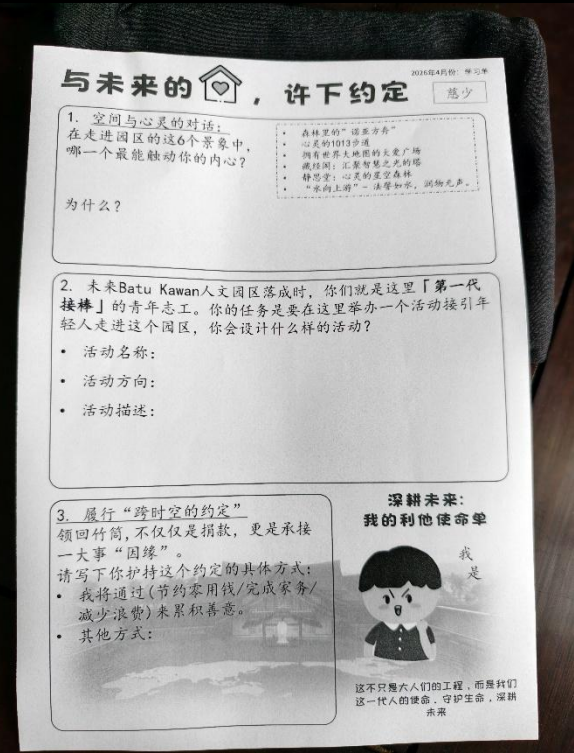 2026年4月份：学习单
与未来的，许下约定
慈少
1. 空间与心灵的对话：
在走进园区的这6个景象中，
哪一个最能触动你的内心？
• 森林里的“诺亚方舟”
• 心灵的1013步道
• 拥有世界大地图的大爱广场
• 藏经阁：汇聚智慧之光的塔
• 静思堂：心灵的星空森林
• “水向上游”- 法譬如水，润物无声。
为什么？
2. 未来Batu Kawan人文园区落成时，你们就是这里「第一代
接棒」的青年志工。你的任务是要在这里举办一个活动接引年
轻人走进这个园区，你会设计什么样的活动？
• 活动名称：
• 活动方向：
• 活动描述：
3. 履行“跨时空的约定”
领回竹筒，不仅仅是捐款，更是承接
一大事“因缘”。
请写下你护持这个约定的具体方式：
• 我将通过(节约零用钱/完成家务/
减少浪费)来累积善意。
• 其他方式：
深耕未来：
我的利他使命单
我
是
这不只是大人们的工程，而是我们
这一代人的使命，守护生命，深耕
未来